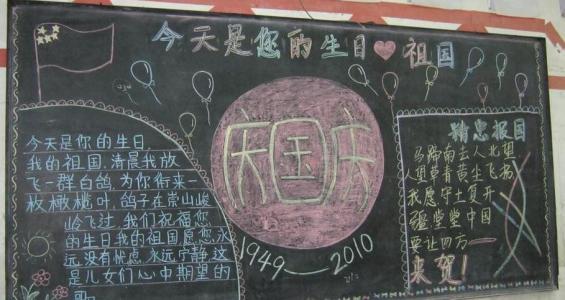 今天是您的生日❤祖国
今天是你的生日,
我的祖国,清晨我放
飞一群白鸽,为你衔来一
枚橄榄叶,鸽子在崇山峻
岭飞过,我们祝福您
的生日我的祖国愿您永
远没有忧患,永远宁静这
是儿女们心中期望的
歌
庆国庆
1949—2010
精忠报国
马蹄南去人北望
人望草青黄尘飞扬
我愿守土复开
疆堂堂中国
要让四方
来贺!